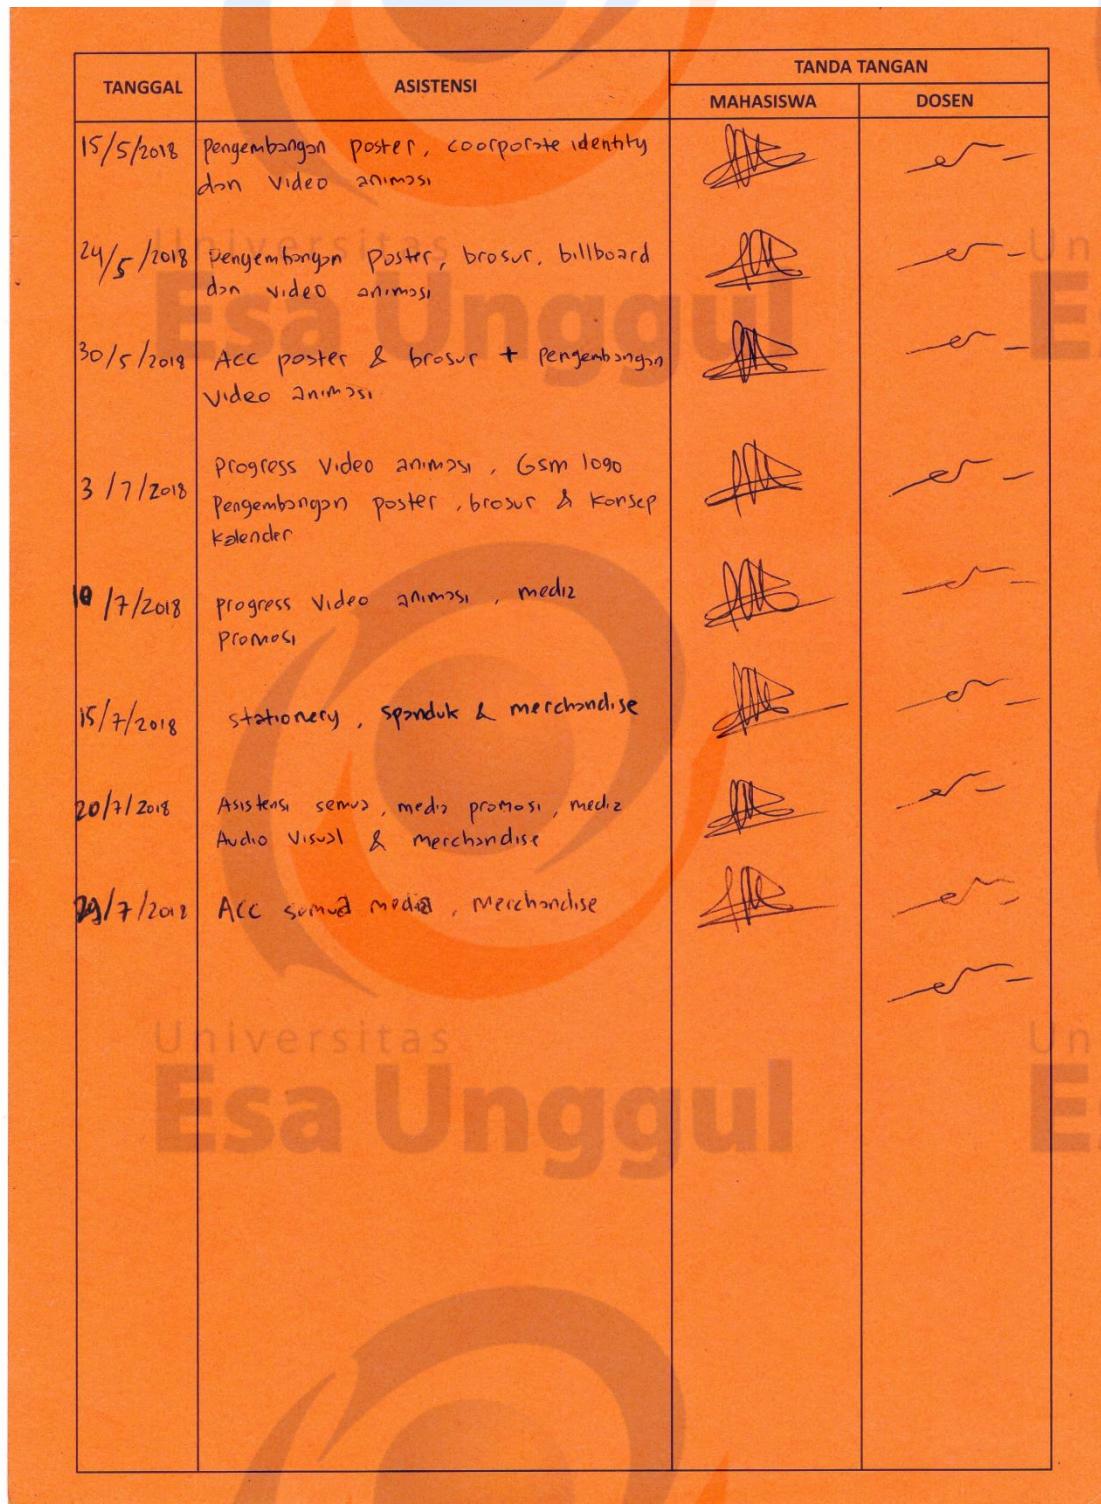 TANGGAL
ASISTENSI
TANDA TANGAN
MAHASISWA
DOSEN
15/5/2018
Pengembangan poster, coorporate identity
dan Video animasi
24/5/2018
Pengembangan Poster, brosur, billboard
dan video animasi
30/5/2018
Acc poster & brosur + pengembangan
Video animasi
3/7/2018
Progress Video animasi, Gsm logo
Pengembangan poster, brosur & Konsep
Kalender
10/7/2018
progress Video animasi, media
Promosi
15/7/2018
stationery, spanduk & merchandise
20/7/2018
Asistensi semua, media promosi, media
Audio Visual & merchandise
29/7/2018
Acc semua media, Merchandise
Universitas
Esa Unggul
Un
E
Universitas
Esa Unggul
Un
E